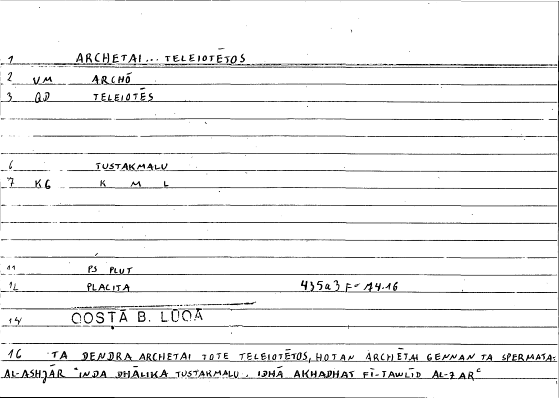 1 ARCHETAI... TELEIOTĒTOS
2 VM ARCHŌ
3 QD TELEIOTĒS
6 TUSTAKMALU
7 KG K M L
11 PS PLUT
12 PLACITA 435a3 F= 14.16
14 QOSṬĀ B. LŪQĀ
16 TA DENDRA ARCHETAI TOTE TELEIOTĒTOS, HOTAN ARCHĒTAI GENNAN TA SPERMATA:
AL-ASHJĀR ʿINDA DHĀLIKA TUSTAKMALU. IDHĀ AKHADHAT FĪ-TAWLĪD AL-ZARʿ